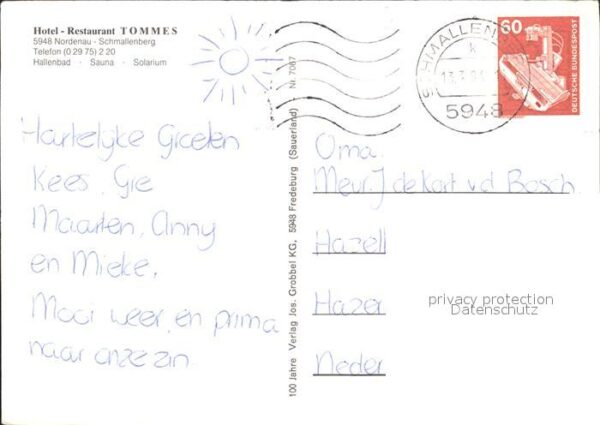 Hotel - Restaurant TOMMES
5948 Nordenau - Schmallenberg
Telefon (0 29 75) 2 20
Hallenbad · Sauna · Solarium
Hartelijke Groeten
Kees, Gré
Maarten, Anny
en Mieke,
Mooi weer, en prima
naar onze zin.
100 Jahre Verlag Jos. Grobbel KG, 5948 Fredeburg (Sauerland) Nr. 7087
5948
60
DEUTSCHE BUNDESPOST
Oma
Mevr. J de Kort v.d Bosch
Hazell
Hazer
Neder
privacy protection
Datenschutz